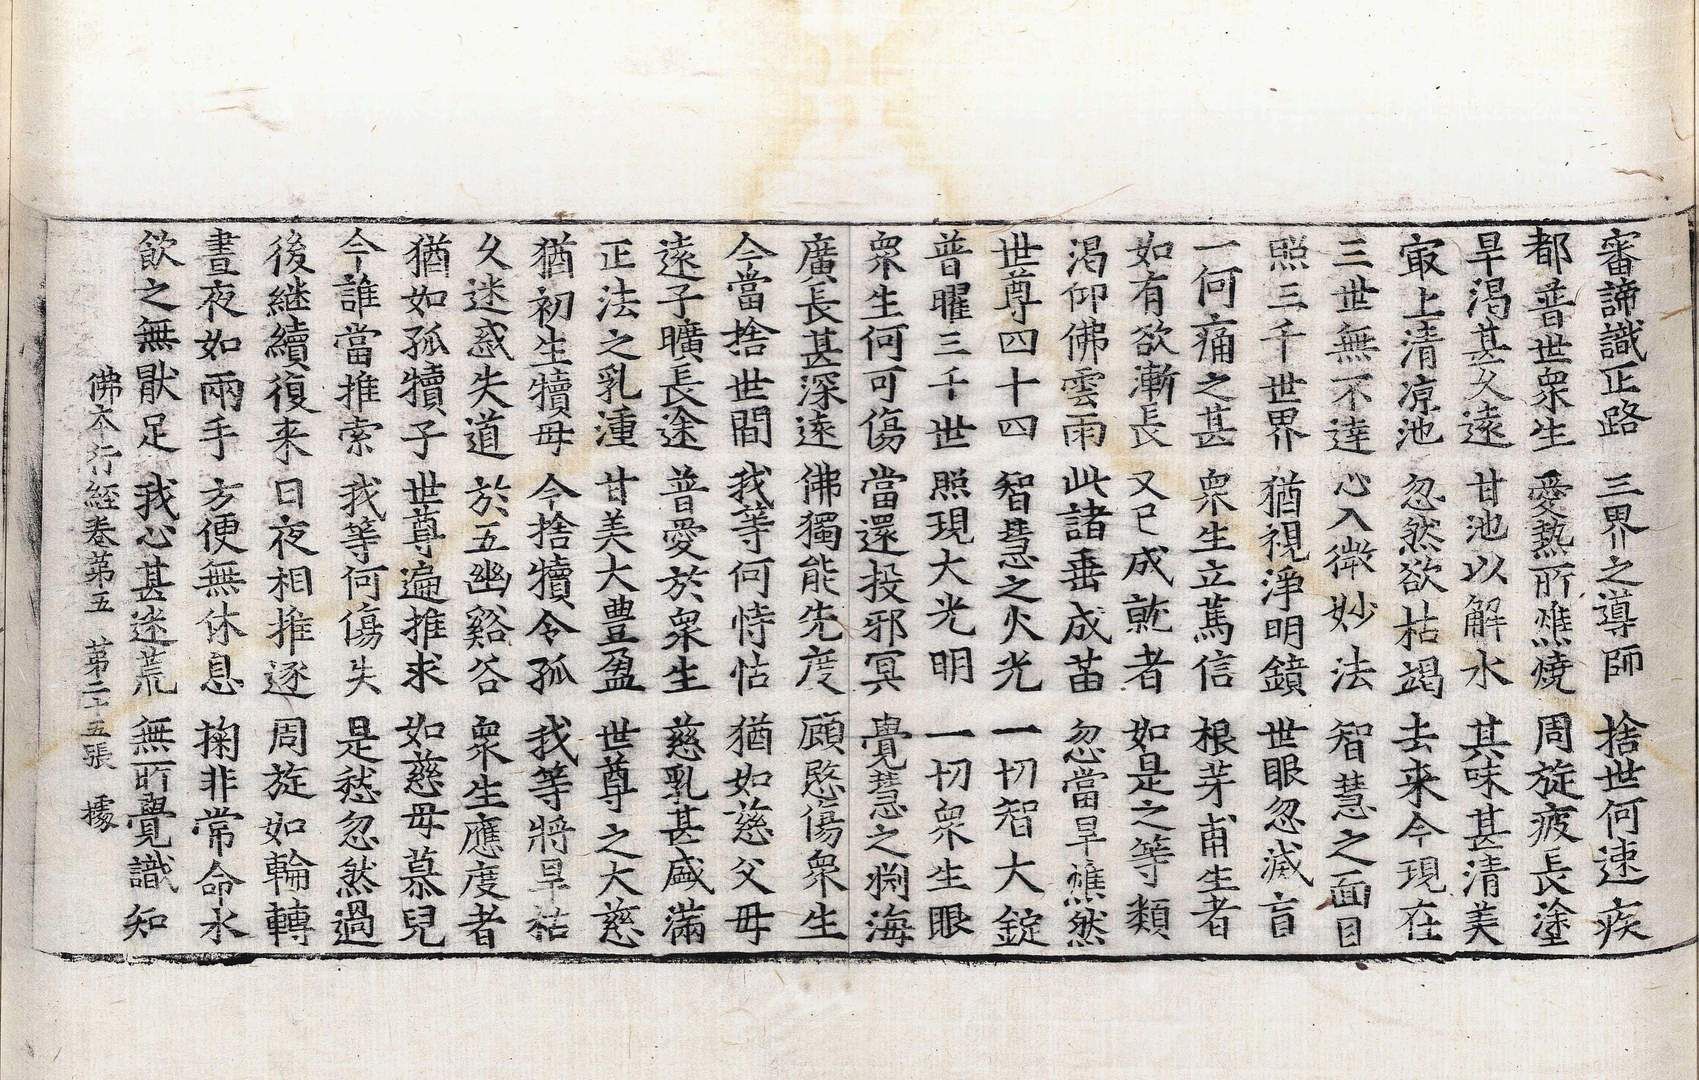 審諦識正路 三界之導師 捨世何速疾
都普世衆生 愛熱所燋燒 周旋疲長塗
旱渴甚久遠 甘池以解水 其味甚清美
冣上清凉池 忽然欲枯竭 去来今現在
三世無不達 心入微妙法 智慧之面目
照三千世界 猶視淨明鏡 世眼忽滅盲
一何痛之甚 衆生立篤信 根芽甫生者
如有欲漸長 又已成就者 如是之等類
渴仰佛雲雨 此諸垂成苗 忽當旱燋然
世尊四十四 智慧之火光 一切智大錠
普曜三千世 照現大光明 一切衆生眼
衆生何可傷 當還投邪冥 覺慧之淵海
廣長甚深遠 佛獨能先度 顧愍傷衆生
今當捨世間 我等何恃怙 猶如慈父母
遠子曠長途 普愛於衆生 慈乳甚盛滿
正法之乳湩 甘美大豊盈 世尊之大慈
猶初生犢母 今捨犢令孤 我等將旱枯
久迷惑失道 於五幽谿谷 衆生應度者
猶如孤犢子 世尊遍推求 如慈母慕兒
今誰當推索 我等何傷失 是愁忽然過
後継續復来 日夜相推逐 周旋如輪轉
晝夜如兩手 方便無休息 掬非常命水
飲之無猒足 我心甚迷荒 無所覺識知
佛本行經卷第五 第二十五張 據